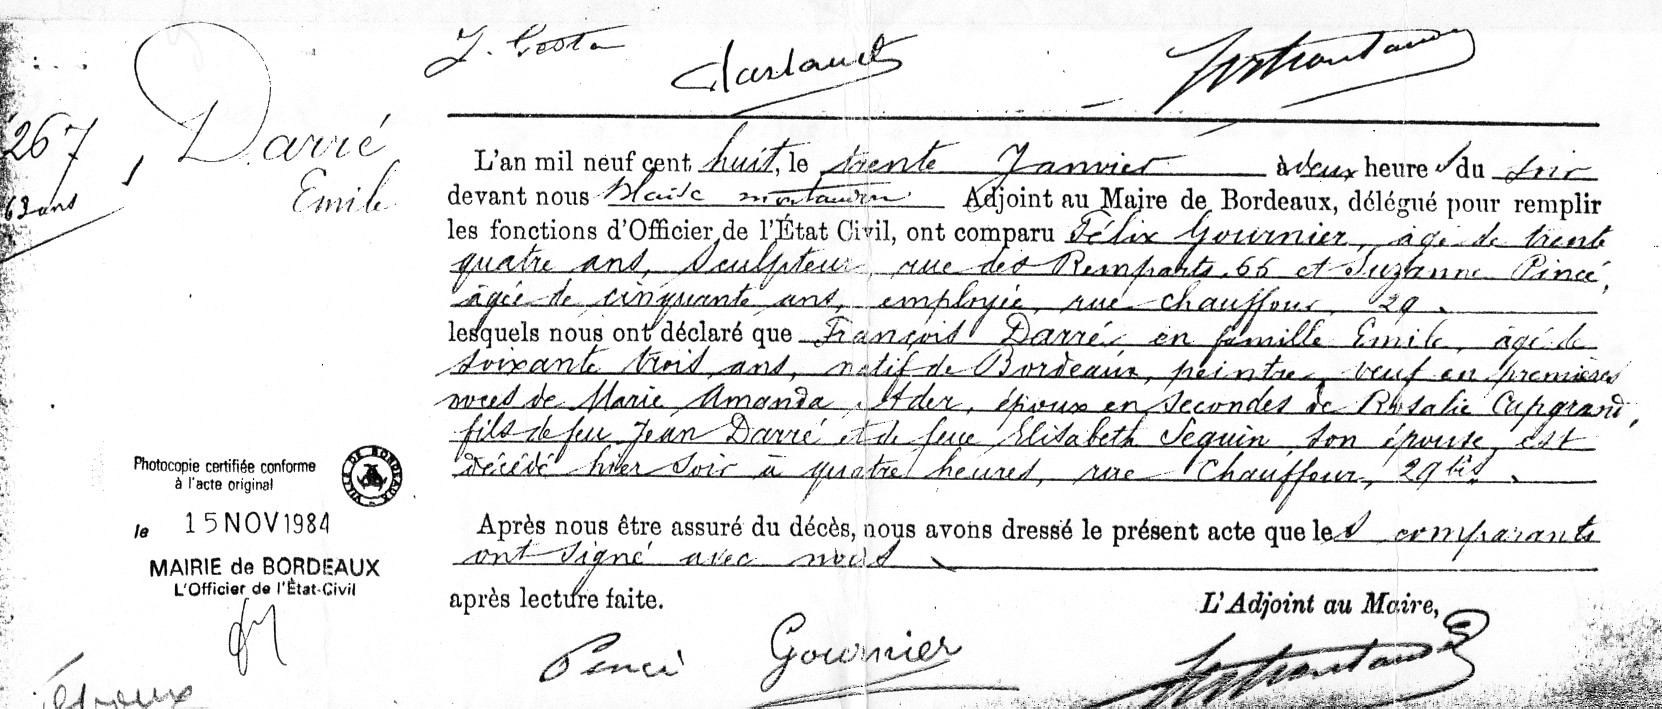 J. Costa
267
Darré
Emile
63 ans
L'an mil neuf cent huit, le trente Janvier à deux heures du soir
devant nous Blaise Adjoint au Maire de Bordeaux, délégué pour remplir
les fonctions d'Officier de l'État Civil, ont comparu Félix Gournier, âgé de trente
quatre ans, sculpteur, rue des Remparts 66 et Suzanne Pincé,
âgée de cinquante ans, employée, rue Chauffour, 29.
lesquels nous ont déclaré que François Darré, en famille Emile, âgé de
soixante trois ans, natif de Bordeaux, peintre, veuf en premières
noces de Marie Amanda Ader, époux en secondes de Rosalie Capgrand,
fils de feu Jean Darré et de feue Elisabeth Seguin son épouse, est
décédé hier soir à quatre heures, rue Chauffour, 29 bis.
Après nous être assuré du décès, nous avons dressé le présent acte que les comparants
ont signé avec nous
après lecture faite.
L'Adjoint au Maire,
Pincé Gournier
Photocopie certifiée conforme
à l'acte original
VILLE DE BORDEAUX
le 15 NOV 1984
MAIRIE de BORDEAUX
L'Officier de l'État-Civil